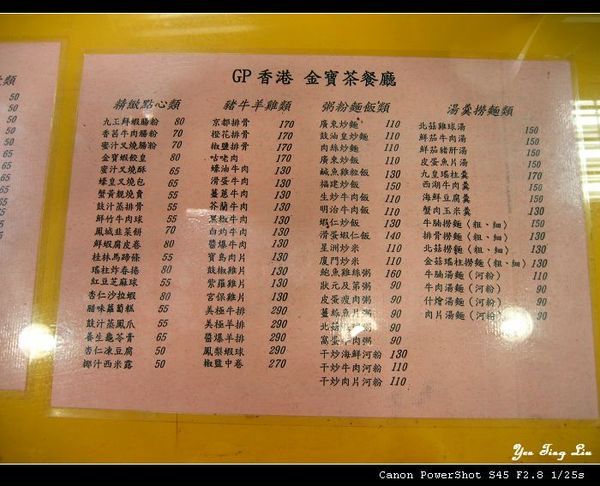 GP 香港 金寶茶餐廳
精緻點心類
九王鮮蝦腸粉 80
香茜牛肉腸粉 70
蜜汁叉燒腸粉 70
金寶蝦餃皇 80
蜜汁叉燒酥 65
蠔皇叉燒包 65
蟹黃燒賣 65
豉汁蒸排骨 55
鮮竹牛肉球 55
鳳城韭菜餅 70
鮮蝦腐皮卷 80
桂林馬蹄條 55
瑤柱炸春捲 80
紅豆芝麻球 55
杏仁沙拉蝦 80
腊味蘿蔔糕 55
豉汁蒸鳳爪 55
養生龜苓膏 65
杏仁凍豆腐 50
椰汁西米露 50
豬牛羊雞類
京都排骨 170
橙花排骨 170
椒鹽排骨 170
咕咾肉 170
蠔油牛肉 130
滑蛋牛肉 130
薑蔥牛肉 130
芥蘭牛肉 130
黑椒牛肉 130
白灼牛肉 130
醬爆牛肉 130
寶島肉片 130
豉椒雞片 130
紫羅雞片 130
宮保雞片 130
美極牛排 290
美極羊排 290
醬爆羊排 290
鳳梨蝦球 290
椒鹽中卷 270
粥粉麵飯類
廣東炒麵 110
豉油皇炒麵 110
肉絲炒麵 110
廣東炒飯 110
鹹魚雞粒飯 110
福建炒飯 150
生炒牛肉飯 110
明治牛肉飯 110
蝦仁炒飯 130
滑蛋蝦仁飯 140
星洲炒米 110
廈門炒米 110
鮑魚雞絲粥 160
狀元及第粥 90
皮蛋瘦肉粥 90
薑絲魚片粥 90
北菇雞粥 90
窩蛋牛肉粥 90
干炒海鮮河粉 130
干炒牛肉河粉 110
干炒肉片河粉 110
湯羹撈麵類
北菇雞球湯 150
鮮茄牛肉湯 150
鮮茄豬肝湯 150
皮蛋魚片湯 150
九皇瑤柱羹 150
西湖牛肉羹 150
海鮮豆腐羹 150
蟹肉玉米羹 150
牛腩撈麵（粗、細） 150
排骨撈麵（粗、細） 130
北菇撈麵（粗、細） 130
金菇瑤柱撈麵（粗、細） 130
牛腩湯麵（河粉） 110
牛肉湯麵（河粉） 90
什燴湯麵（河粉） 90
肉片湯麵（河粉） 90
Yen Ting Liu
Canon PowerShot S45 F2.8 1/25s